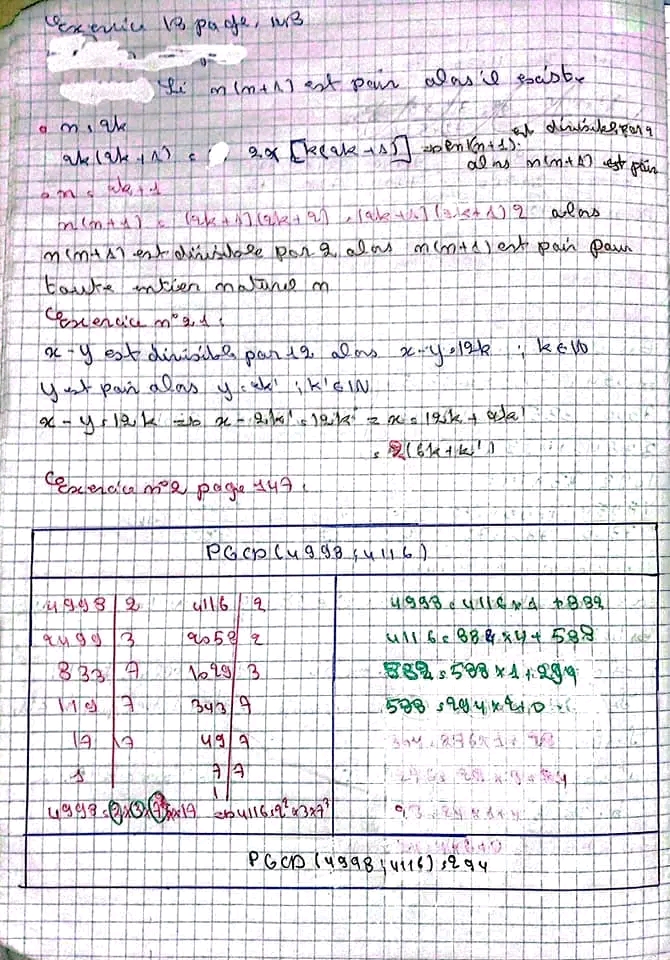 Exercice 13 page, 113
Si n(n+1) est pair alors il existe
• n = 2k est divisible par 2
2k(2k+1) = 2x[k(2k+1)] => n(n+1)
alors n(n+1) est pair
• n = 2k+1
n(n+1) = (2k+1)(2k+2) = (2k+1)(k+1)2 alors
n(n+1) est divisible par 2 alors n(n+1) est pair pour
toute entier naturel n
Exercice n°21:
x-y est divisible par 12 alors x-y=12k ; k∈IN
y est pair alors y=2k' ; k'∈IN
x-y=12k => x-2k'=12k = x=12k+2k'
= 2(6k+k')
Exercice n°2 page 147:
PGCD(4998;4116)
4998 | 2 4116 | 2 4998=4116x1+882
2499 | 3 2058 | 2 4116=882x4+588
833 | 7 1029 | 3 882=588x1+294
119 | 7 343 | 7 588=294x2+0
17 | 17 49 | 7
1 7 | 7
1
4998=2x3x7²x17 => 4116=2²x3x7³
PGCD(4998;4116)=294